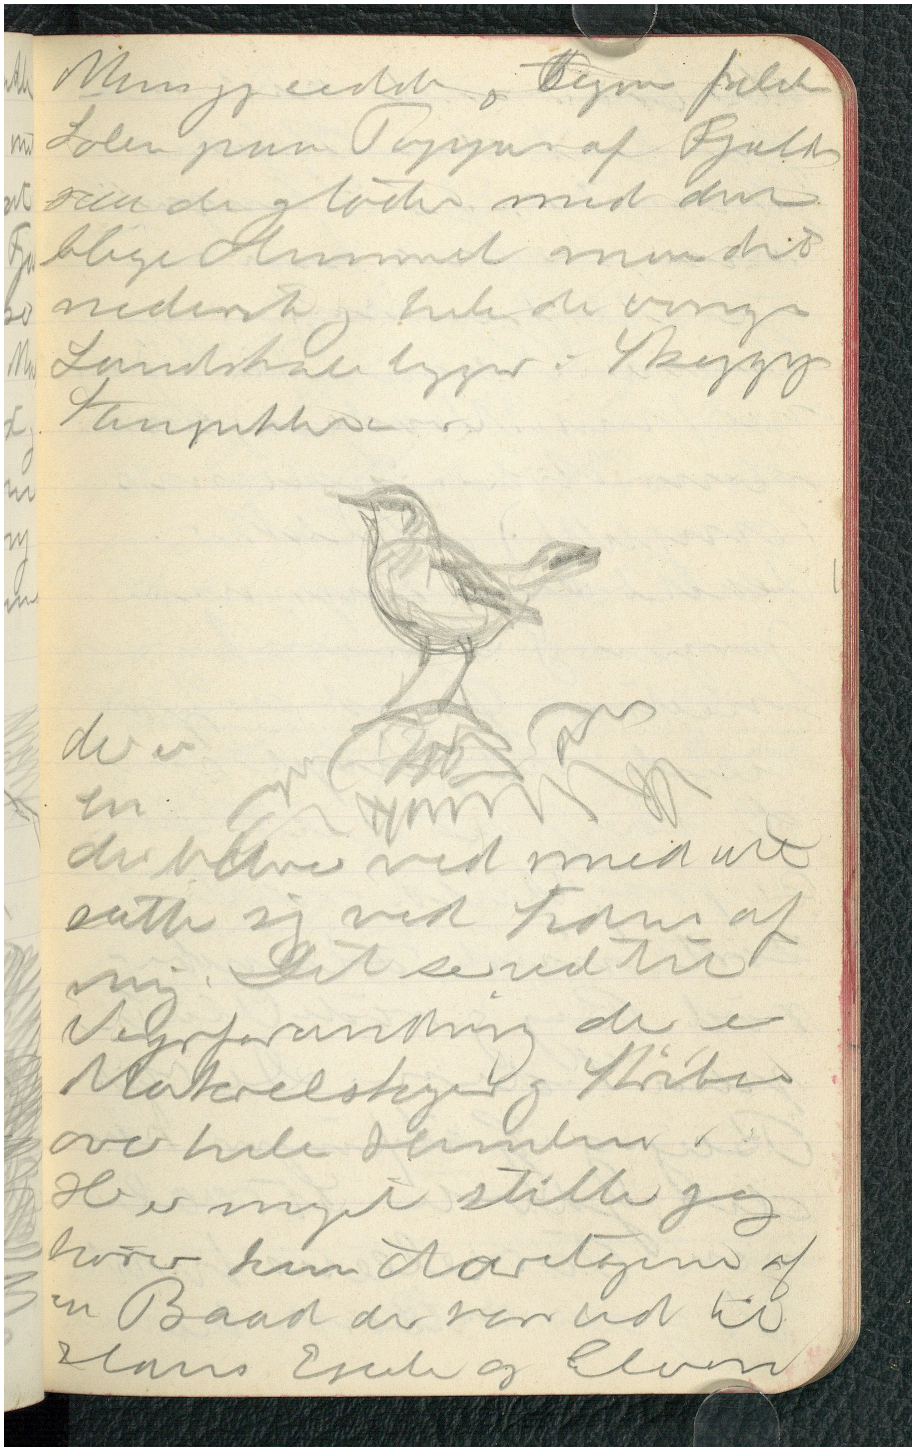 Mens jeg sidder og tegner falder
Solen paa Toppen af Fjeldet
saa de gløder mod den
blege Himmel men det
nederste og hele de øvrige
Landskab ligger i Skygge
der er
en
der bliver ved med at
sætte sig ved Siden af
mig. Det ser ud til
Vejrforandring der er
Makrelskyer og Striber
over hele Himlen
Her er meget stille jeg
hører kun Aaretagene af
en Baad der ror ud til
Hans Egede og Elven